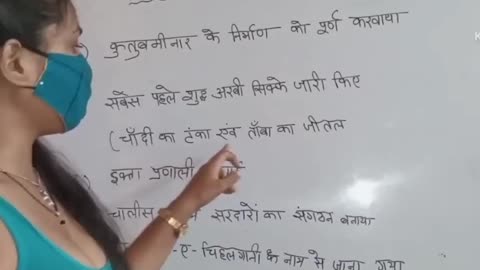 कुतुबमीनार के निर्माण को पूर्ण करवाया
सबसे पहले शुद्ध अरबी सिक्के जारी किए
(चाँदी का टंका एवं ताँबा का जीतल
इक्ता प्रणाली
चालीस सरदारों का संगठन बनाया
-ए-चिहलगानी के नाम से जाना गया